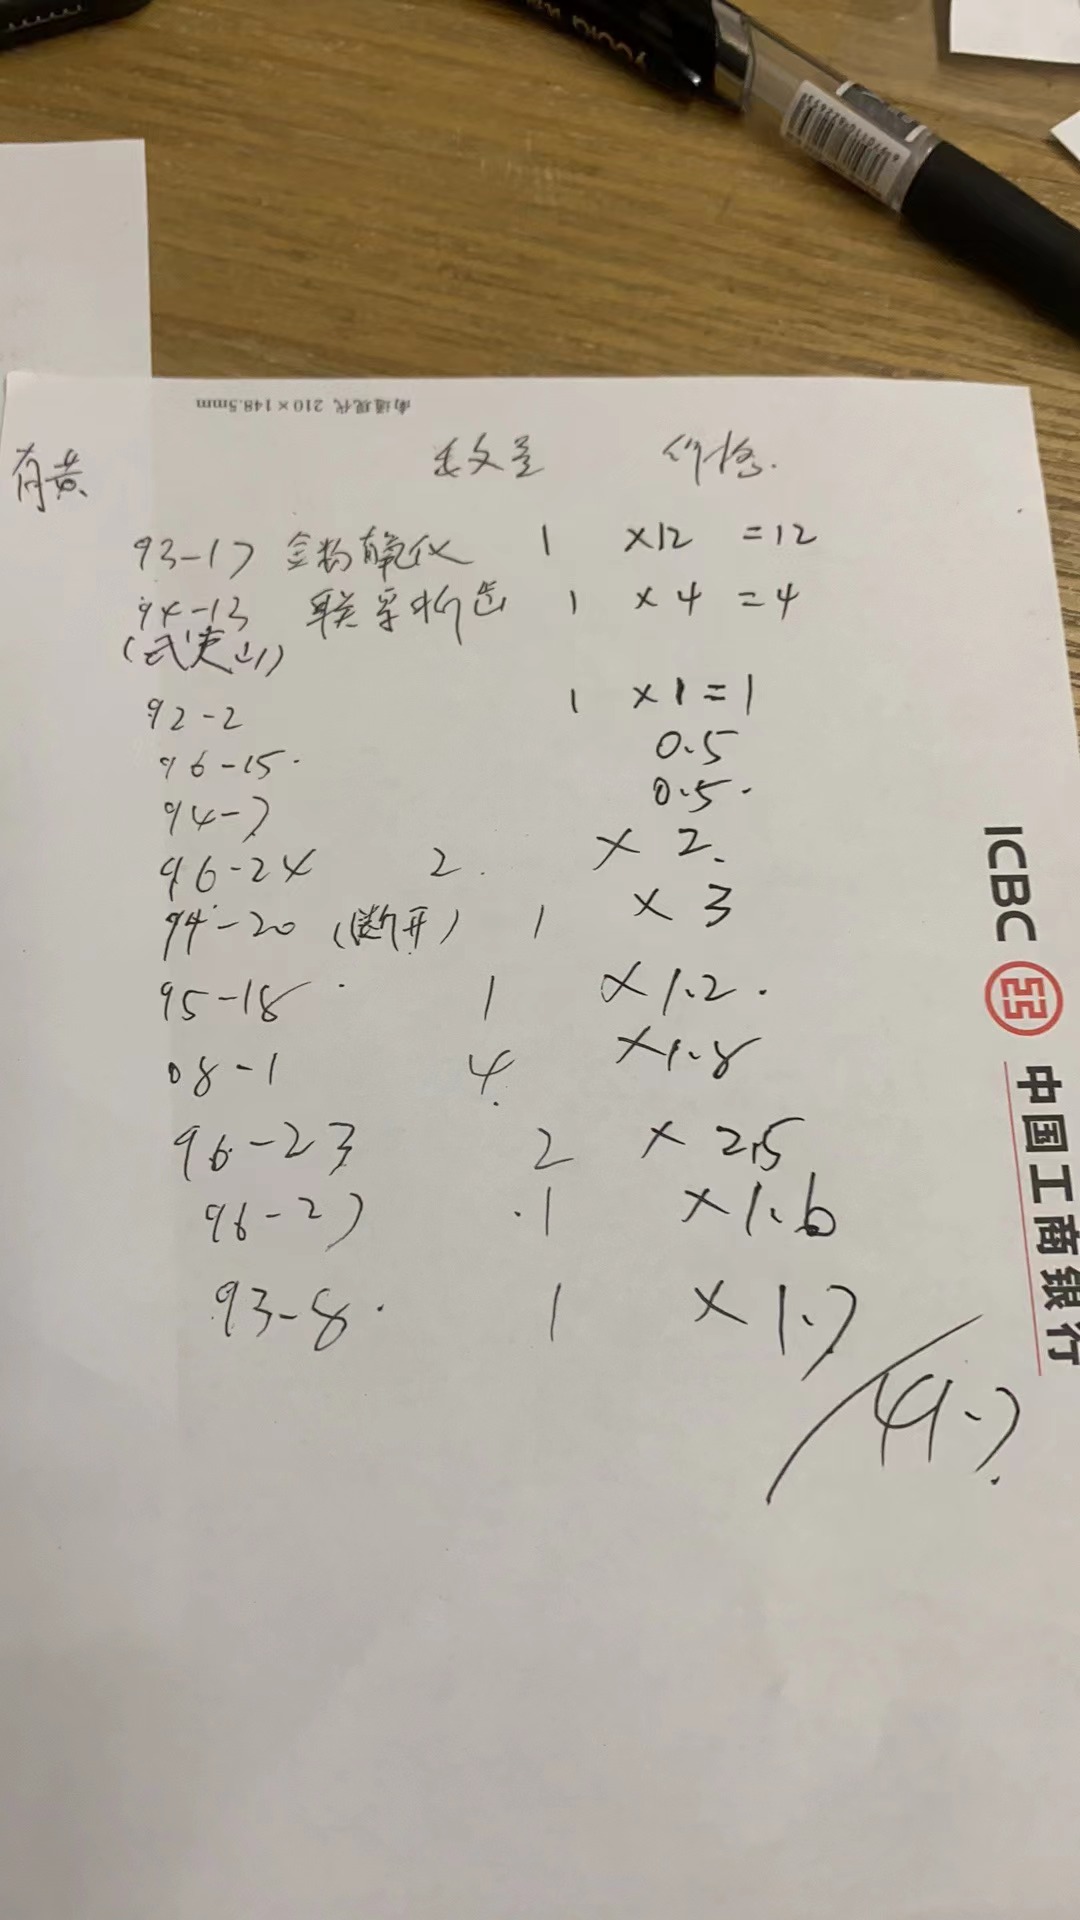 南通现代 210×148.5mm
有黄 数量 价格.
93-17 金粉有氧化 1 ×12 =12
94-13 联系折齿 1 ×4 =4
(武夷山)
92-2 1 ×1=1
96-15. 0.5
94-7 0.5.
96-24 2. × 2.
94-20 (撕开) 1 × 3
95-18 1 ×1.2.
08-1 4 ×1.8
96-23 2 × 2.5
96-27 .1 ×1.6
93-8. 1 ×1.7
41.7
ICBC 中国工商银行